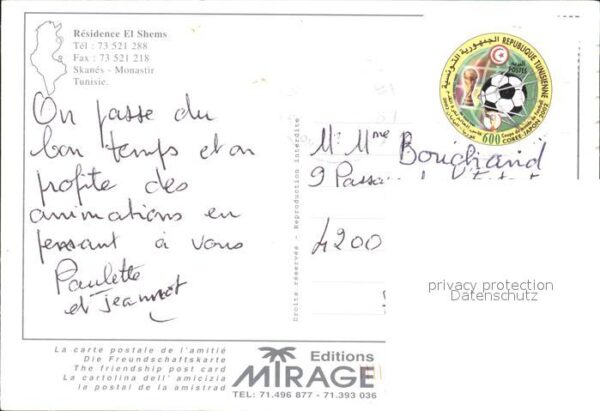 Résidence El Shems
Tél : 73 521 288
Fax : 73 521 218
Skanès - Monastir
Tunisie.
On passe du
bon temps et on
profite des
animations en
pensant à vous
Paulette
et Jeannot
Droits réservés - Reproduction interdite
الجمهورية التونسية
REPUBLIQUE TUNISIENNE
POSTES
600
COREE-JAPON 2002
M. Mme Bouchand
9 Passa
4200
privacy protection
Datenschutz
La carte postale de l'amitié
Die Freundschaftskarte
The friendship post card
La cartolina dell' amicizia
la postal de la amistrad
Editions
MIRAGE
TEL: 71.496 877 - 71.393 036